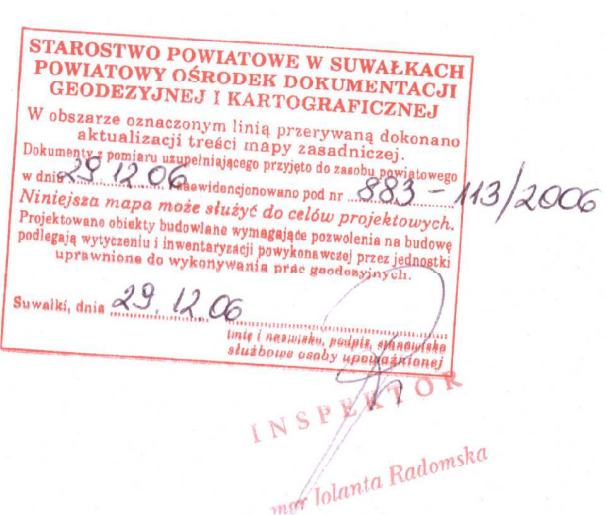 STAROSTWO POWIATOWE W SUWAŁKACH
POWIATOWY OŚRODEK DOKUMENTACJI
GEODEZYJNEJ I KARTOGRAFICZNEJ
W obszarze oznaczonym linią przerywaną dokonano
aktualizacji treści mapy zasadniczej.
Dokumenty z pomiaru uzupełniającego przyjęto do zasobu powiatowego
w dniu 29 12 06 zaewidencjonowano pod nr 883 - 113/2006
Niniejsza mapa może służyć do celów projektowych.
Projektowane obiekty budowlane wymagające pozwolenia na budowę
podlegają wytyczeniu i inwentaryzacji powykonawczej przez jednostki
uprawnione do wykonywania prac geodezyjnych.
Suwałki, dnia 29. 12. 06
imię i nazwisko, podpis, stanowisko
służbowe osoby upoważnionej
INSPEKTOR
mgr Jolanta Radomska